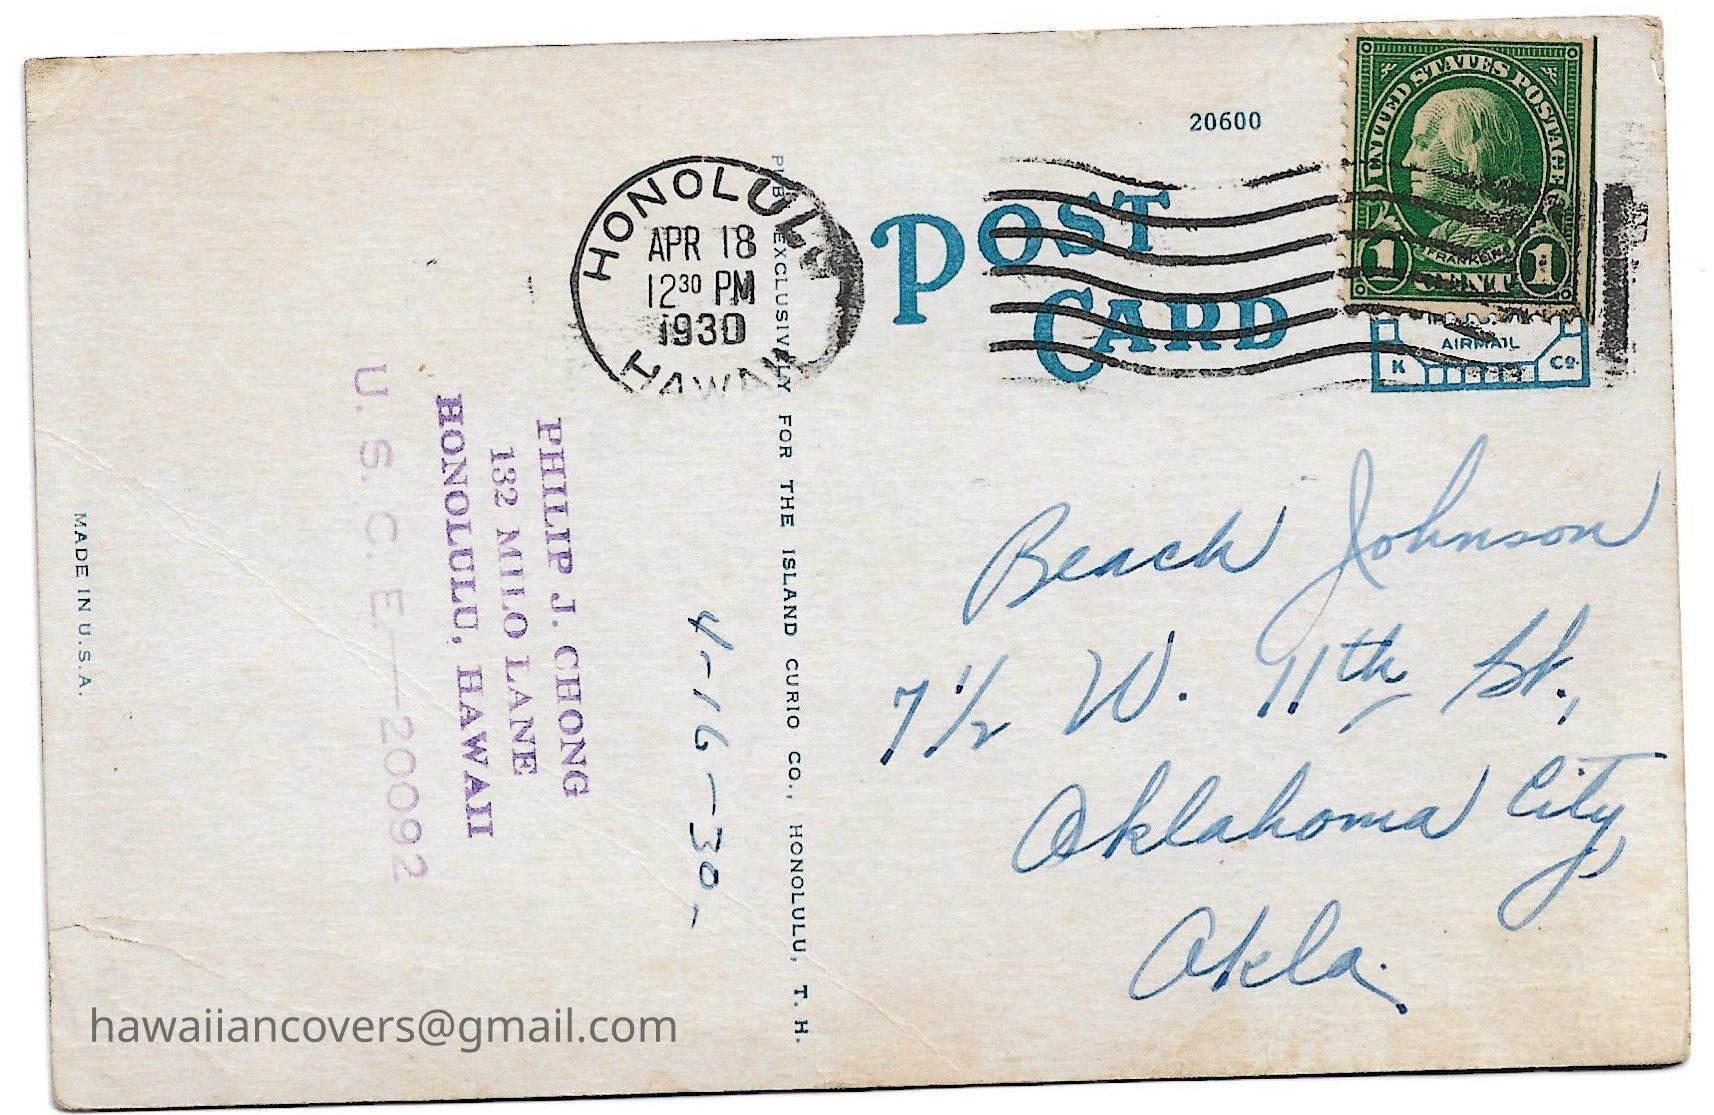 20600
UNITED STATES POSTAGE
FRANKLIN
1 CENT 1
HONOLULU
APR 18
12 30 PM
1930
HAWAII
POST
CARD
AIRMAIL
K Co.
PUB. EXCLUSIVELY FOR THE ISLAND CURIO CO., HONOLULU, T. H.
PHILIP J. CHONG
132 MILO LANE
HONOLULU, HAWAII
U. S. C. E—20092
4-16-30-
MADE IN U. S. A.
Beach Johnson
7 1/2 W. 11th St.,
Oklahoma City,
Okla.
hawaiiancovers@gmail.com